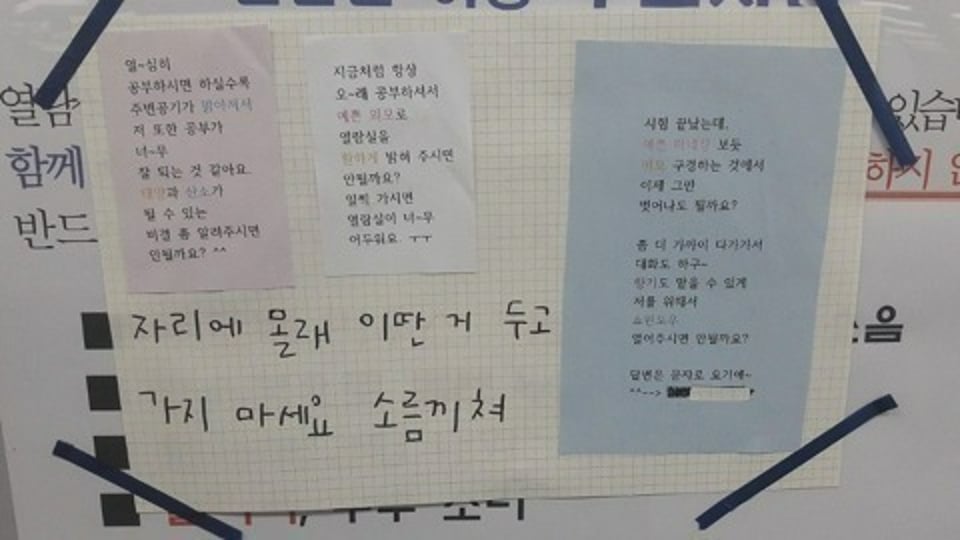 열~심히
공부하시면 하실수록
주변공기가 맑아져서
저 또한 공부가
너~무
잘 되는 것 같아요.
태양과 산소가
될 수 있는
비결 좀 알려주시면
안될까요? ^^
지금처럼 항상
오~래 공부하셔서
예쁜 외모로
열람실을
환하게 밝혀 주시면
안될까요?
일찍 가시면
열람실이 너~무
어두워요. ㅜㅜ
시험 끝났는데,
예쁜 마네킹 보듯
외모 구경하는 것에서
이제 그만
벗어나도 될까요?
좀 더 가까이 다가가서
대화도 하구~
향기도 맡을 수 있게
저를 위해서
쇼윈도우
열어주시면 안될까요?
답변은 문자로 요기에~
^^-->
자리에 몰래 이딴 거 두고
가지 마세요 소름끼쳐
열람
함께
반드
있습
하지
음
소리